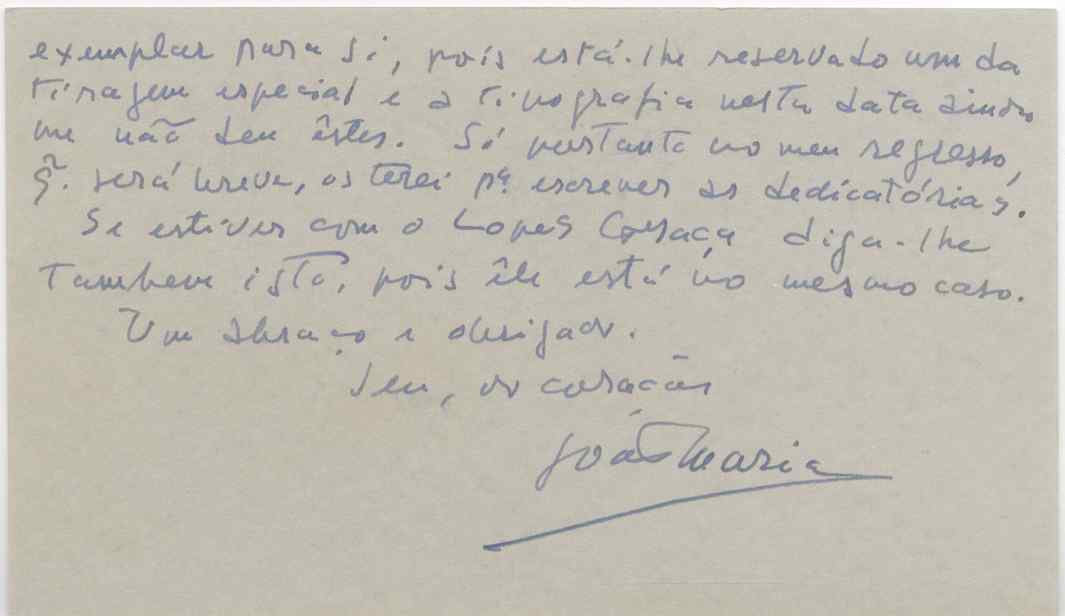 exemplar para si, pois está-lhe reservado um da
tiragem especial e a tipografia nesta data ainda
me não deu êstes. Só portanto no meu regresso,
q̃. será breve, os terei pª. escrever as dedicatórias.
Se estiver com o Lopes Graça diga-lhe
tambem isto, pois êle está no mesmo caso.
Um abraço e obrigado.
Seu, do coração
João Maria